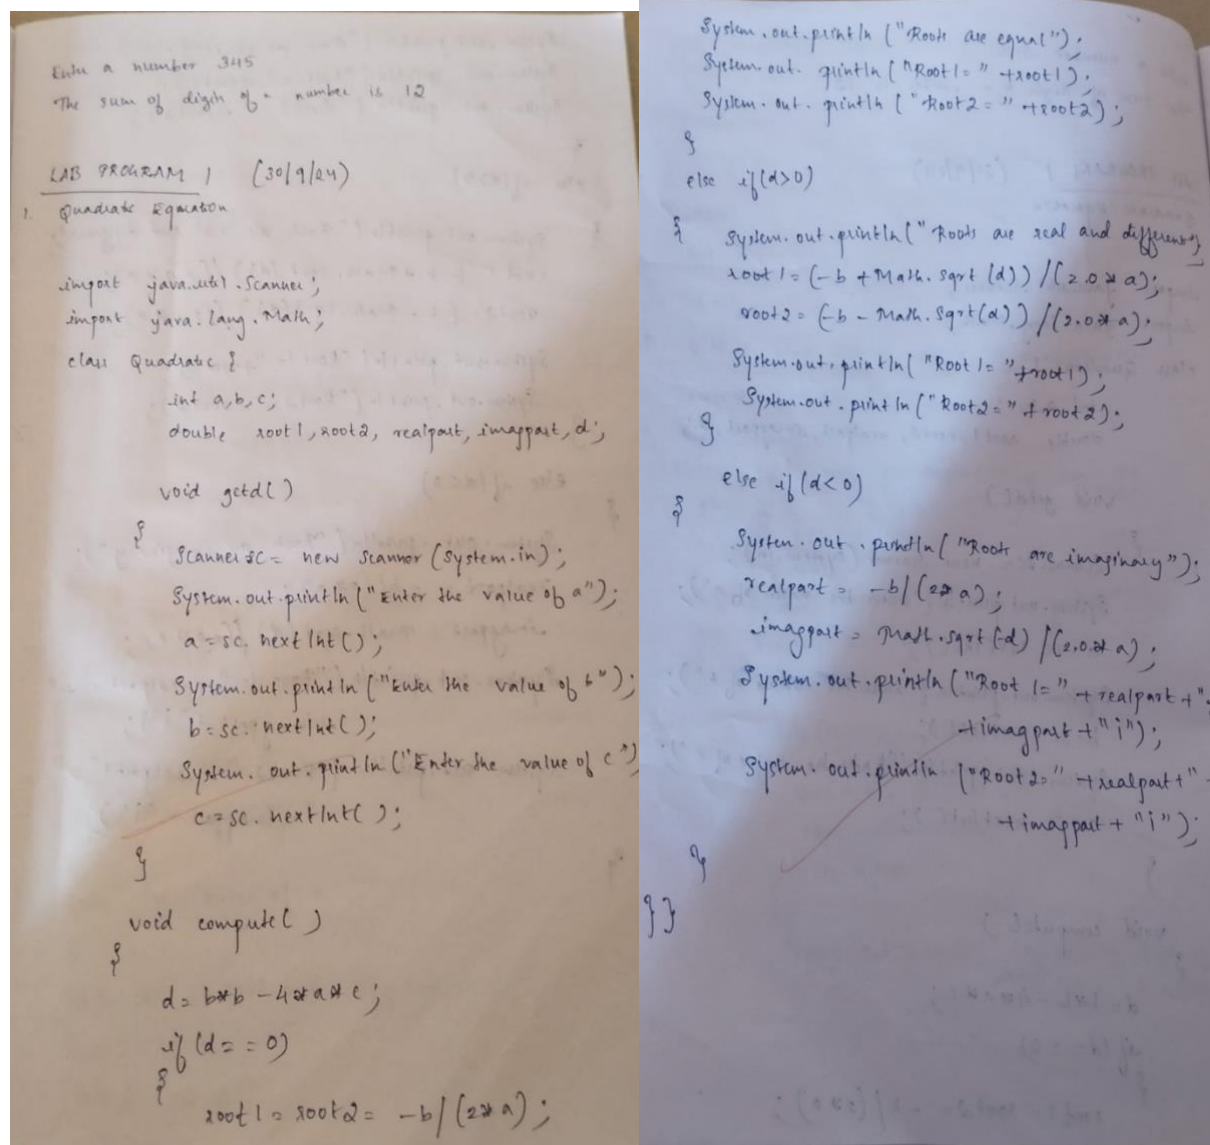 Enter a number 345
The sum of digits of a number is 12
LAB PROGRAM 1 (30/9/24)
1. Quadratic Equation
import java.util.Scanner;
import java.lang.Math;
class Quadratic {
int a,b,c;
double root1, root2, realpart, imagpart, d;
void getd()
{
Scanner sc = new Scanner (System.in);
System.out.println ("Enter the value of a");
a = sc.nextInt();
System.out.println ("Enter the value of b");
b = sc.nextInt();
System.out.println ("Enter the value of c")
c = sc.nextInt();
}
void compute()
{
d = b*b - 4*a*c;
if (d==0)
{
root1 = root2 = -b/(2*a);
System.out.println ("Roots are equal");
System.out.println ("Root1=" +root1);
System.out.println ("Root2=" +root2);
}
else if(d>0)
{
System.out.println ("Roots are real and different");
root1 = (-b + Math.sqrt(d))/(2.0*a);
root2 = (-b - Math.sqrt(d))/(2.0*a);
System.out.println ("Root1=" +root1);
System.out.println ("Root2=" + root2);
}
else if(d<0)
{
System.out.println ("Roots are imaginary");
realpart = -b/(2*a);
imagpart = Math.sqrt(-d)/(2.0*a);
System.out.println ("Root 1=" +realpart+"
+imagpart+"i");
System.out.println ("Root2=" +realpart+"
+imagpart+"i");
}
}}